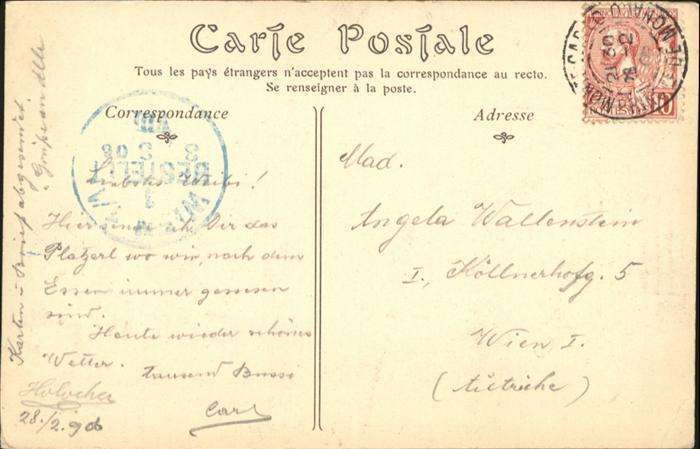 Carte Postale
Tous les pays étrangers n'acceptent pas la correspondance au recto.
Se renseigner à la poste.
Correspondance
Adresse
Liebstes Weibi!
Hier sende ich Dir das
Platzerl wo wir nach dem
Essen immer gesessen
sind.
Heute wieder schönes
Wetter. tausend Bussi
Carl
28./2. 906
Karten u
abgesendet
Mad.
Angela Wallenstein
I, Köllnerhofg. 5
Wien I.
(Autriche)
BESTELLT
WIEN
MONTE CARLO